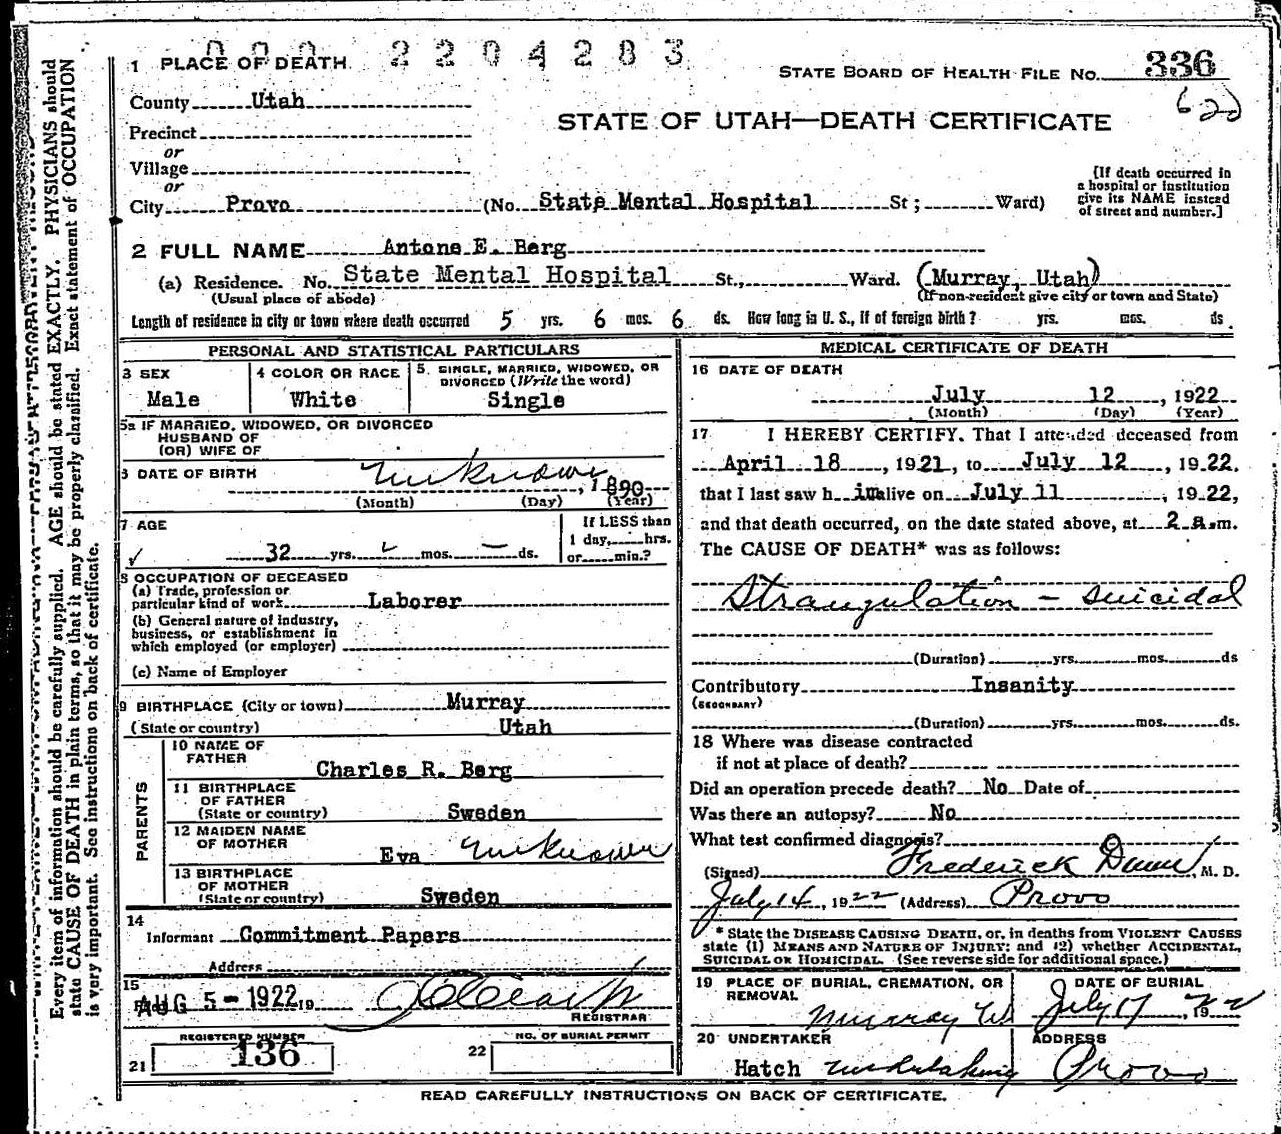 000 2204283
1 PLACE OF DEATH
STATE BOARD OF HEALTH FILE NO. 336
620
County Utah
STATE OF UTAH—DEATH CERTIFICATE
Precinct
or
Village
or
City Provo (No. State Mental Hospital St; Ward)
[If death occurred in
a hospital or institution
give its NAME instead
of street and number.]
2 FULL NAME Antone E. Berg
(a) Residence. No. State Mental Hospital St., Ward. (Murray, Utah)
(Usual place of abode) (If non-resident give city or town and State)
Length of residence in city or town where death occurred 5 yrs. 6 mos. 6 ds. How long in U. S., if of foreign birth? yrs. mos. ds.
PERSONAL AND STATISTICAL PARTICULARS
3 SEX
Male
4 COLOR OR RACE
White
5. SINGLE, MARRIED, WIDOWED, OR
DIVORCED (Write the word)
Single
5a IF MARRIED, WIDOWED, OR DIVORCED
HUSBAND OF
(OR) WIFE OF
6 DATE OF BIRTH unknown, 1890
(Month) (Day) (Year)
7 AGE
32 yrs. mos. — ds.
If LESS than
1 day, hrs.
or min.?
8 OCCUPATION OF DECEASED
(a) Trade, profession or
particular kind of work Laborer
(b) General nature of industry,
business, or establishment in
which employed (or employer)
(c) Name of Employer
9 BIRTHPLACE (City or town) Murray
(State or country) Utah
PARENTS
10 NAME OF
FATHER
Charles R. Berg
11 BIRTHPLACE
OF FATHER
(State or country) Sweden
12 MAIDEN NAME
OF MOTHER
Eva unknown
13 BIRTHPLACE
OF MOTHER
(State or country) Sweden
14
Informant Commitment Papers
Address
15
AUG 5-1922 19
REGISTRAR
REGISTERED NUMBER
21 136
NO. OF BURIAL PERMIT
22
MEDICAL CERTIFICATE OF DEATH
16 DATE OF DEATH
July 12, 1922
(Month) (Day) (Year)
17 I HEREBY CERTIFY, That I attended deceased from
April 18, 1921, to July 12, 1922,
that I last saw h im alive on July 11, 1922,
and that death occurred, on the date stated above, at 2 a.m.
The CAUSE OF DEATH* was as follows:
Strangulation – suicidal
(Duration) yrs. mos. ds
Contributory Insanity
(SECONDARY)
(Duration) yrs. mos. ds.
18 Where was disease contracted
if not at place of death?
Did an operation precede death? No Date of
Was there an autopsy? No
What test confirmed diagnosis?
(Signed) Frederick Dunn, M. D.
July 14, 1922 (Address) Provo
* State the DISEASE CAUSING DEATH, or, in deaths from VIOLENT CAUSES
state (1) MEANS AND NATURE OF INJURY; and (2) whether ACCIDENTAL,
SUICIDAL OR HOMICIDAL. (See reverse side for additional space.)
19 PLACE OF BURIAL, CREMATION, OR
REMOVAL
Murray U.
DATE OF BURIAL
July 17, 1922
20 UNDERTAKER
Hatch undertaking
ADDRESS
Provo
READ CAREFULLY INSTRUCTIONS ON BACK OF CERTIFICATE.
Every item of information should be carefully supplied. AGE should be stated EXACTLY. PHYSICIANS should
state CAUSE OF DEATH in plain terms, so that it may be properly classified. Exact statement of OCCUPATION
is very important. See instructions on back of certificate.